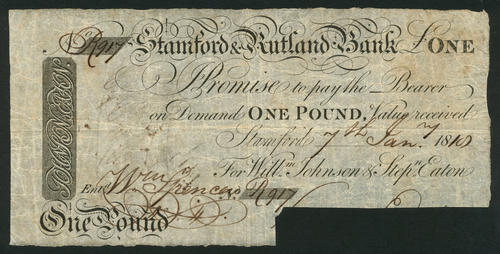 R917 Stamford & Rutland Bank £ONE
I Promise to pay the Bearer
on Demand ONE POUND, Value received
Stamford 7th Jany 1810
For Willm Johnson & Stepn Eaton
Entd Wm Spencer R917
One Pound